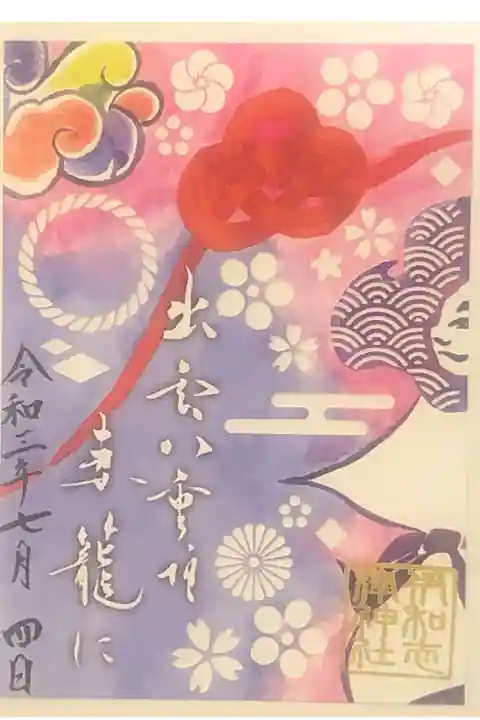 出雲八重垣
妻籠に
令和三年七月 四日
伊和志
津神社